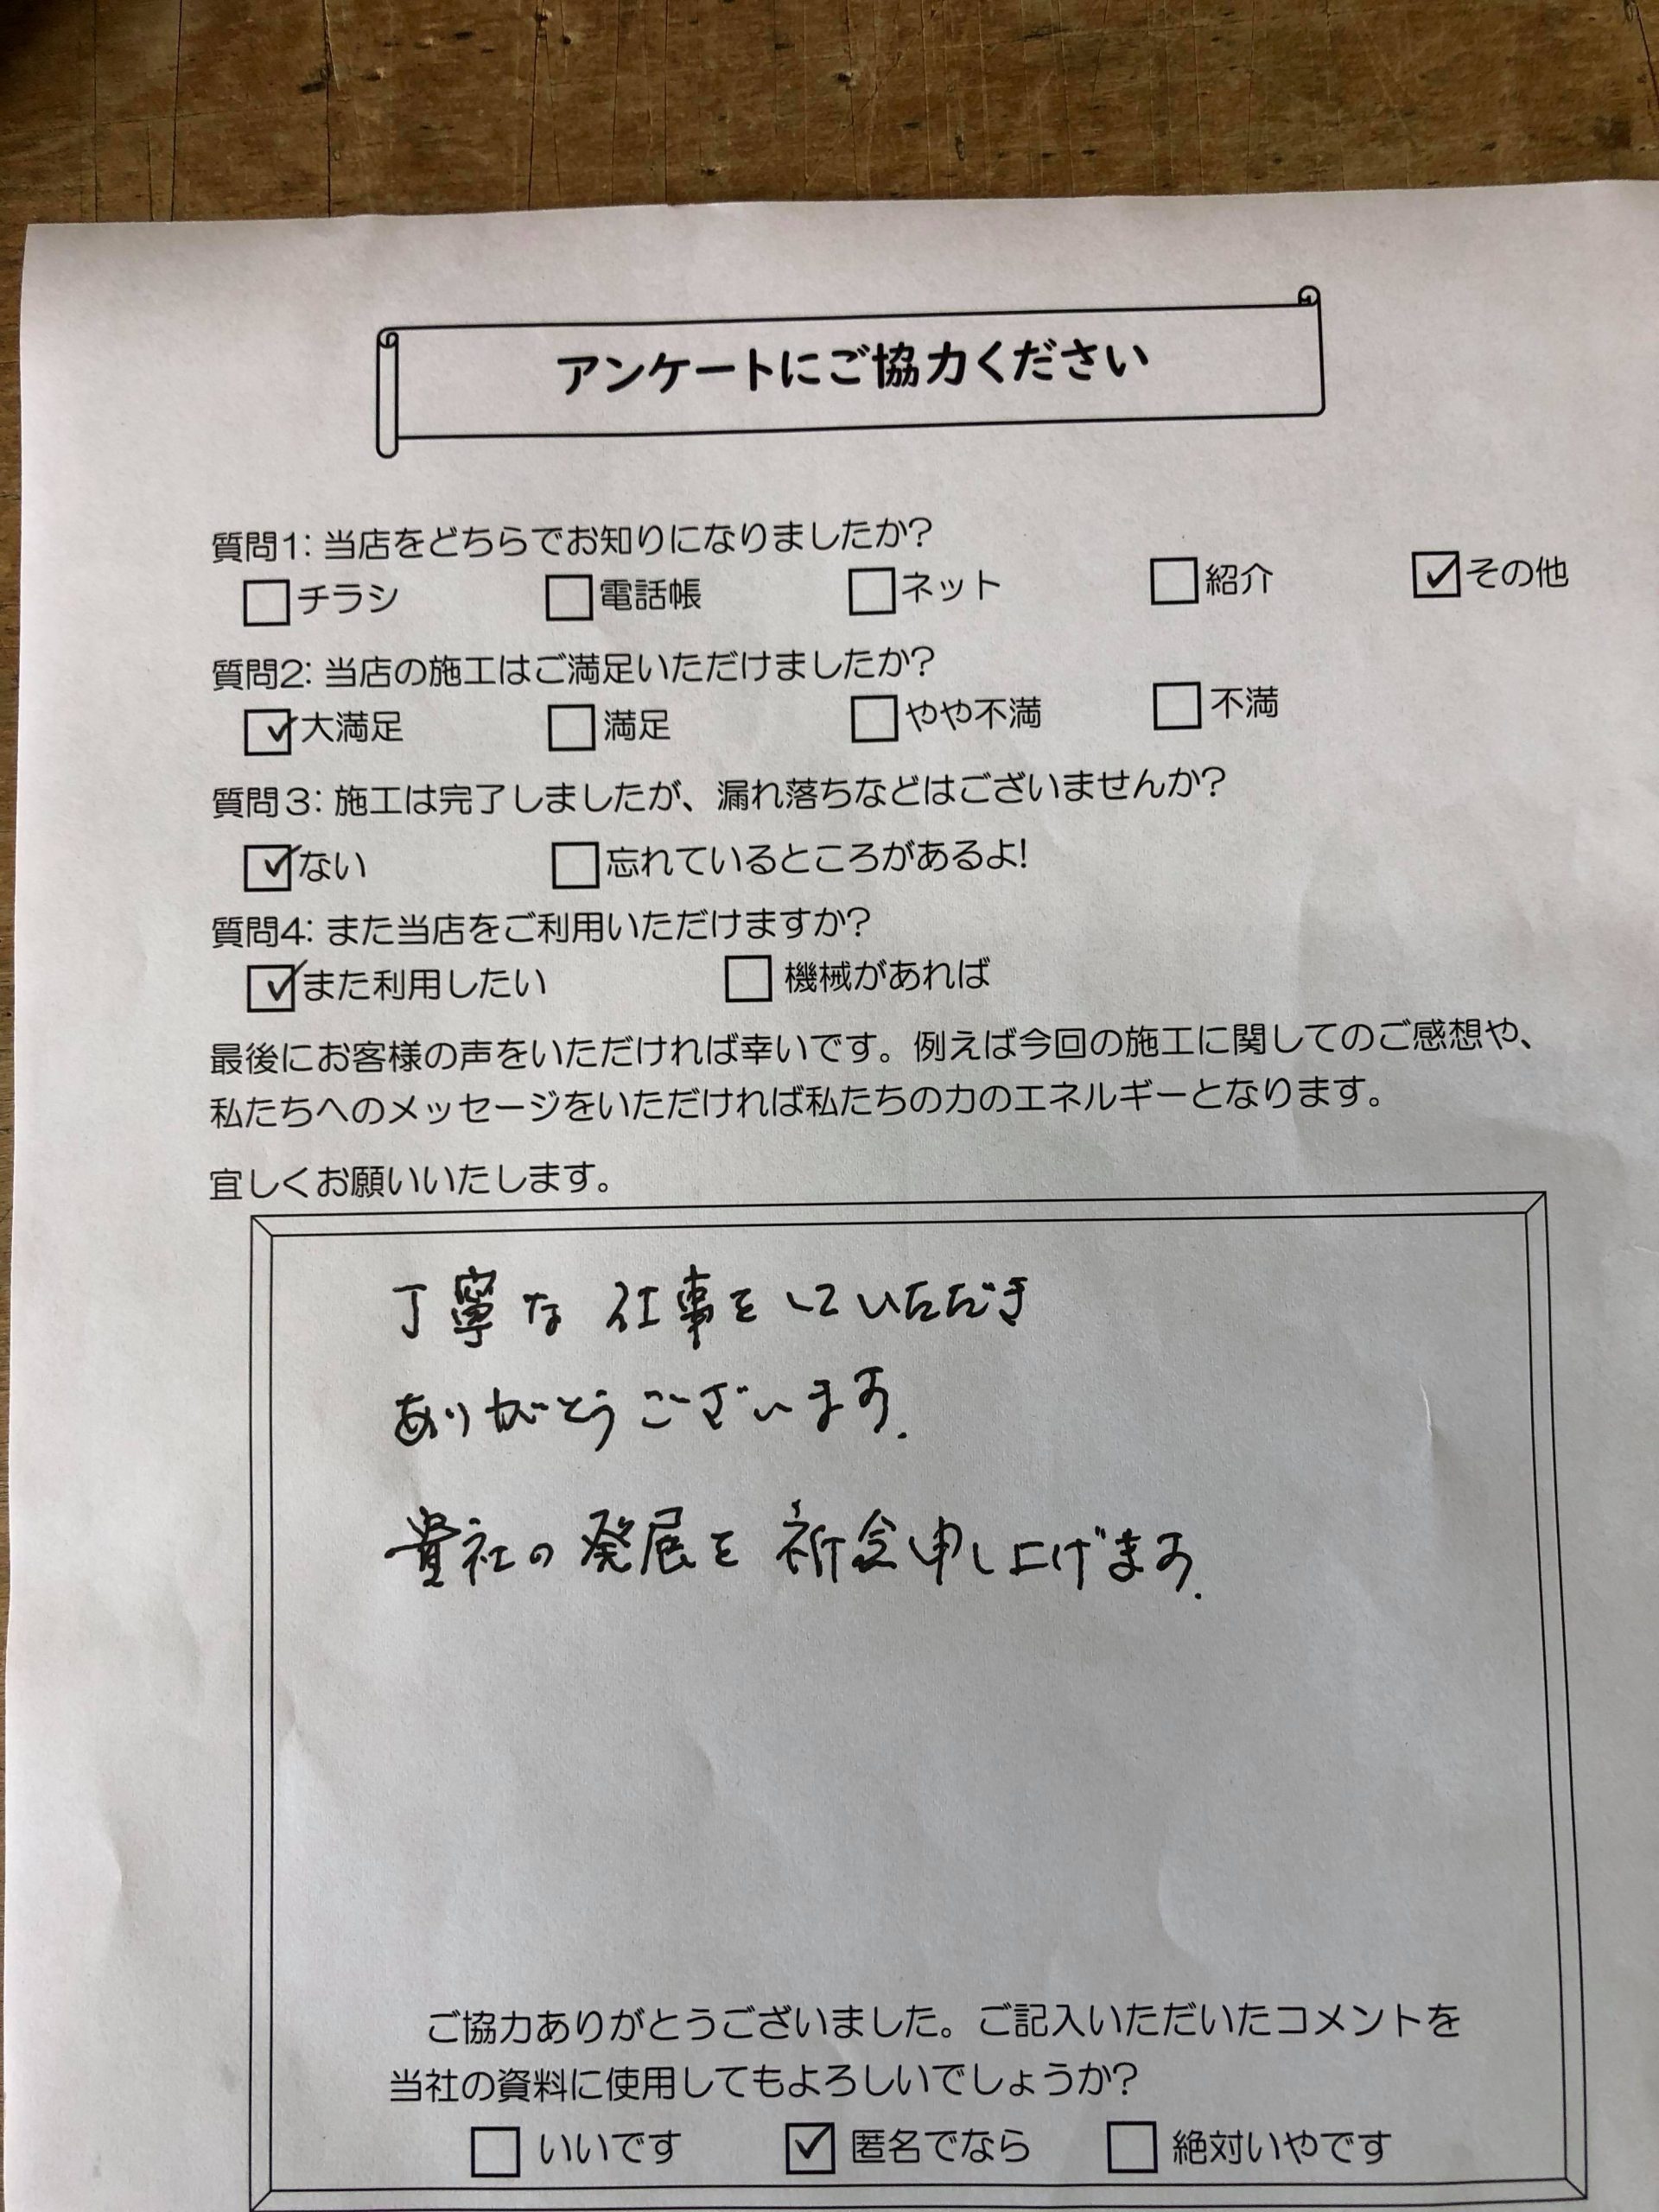 アンケートにご協力ください
質問1: 当店をどちらでお知りになりましたか?
□チラシ □電話帳 □ネット □紹介 ☑その他
質問2: 当店の施工はご満足いただけましたか?
☑大満足 □満足 □やや不満 □不満
質問3: 施工は完了しましたが、漏れ落ちなどはございませんか?
☑ない □忘れているところがあるよ!
質問4: また当店をご利用いただけますか?
☑また利用したい □機械があれば
最後にお客様の声をいただければ幸いです。例えば今回の施工に関してのご感想や、
私たちへのメッセージをいただければ私たちの力のエネルギーとなります。
宜しくお願いいたします。
丁寧な仕事をしていただき
ありがとうございます.
貴社の発展を祈念申し上げます.
ご協力ありがとうございました。ご記入いただいたコメントを
当社の資料に使用してもよろしいでしょうか?
□いいです ☑匿名でなら □絶対いやです